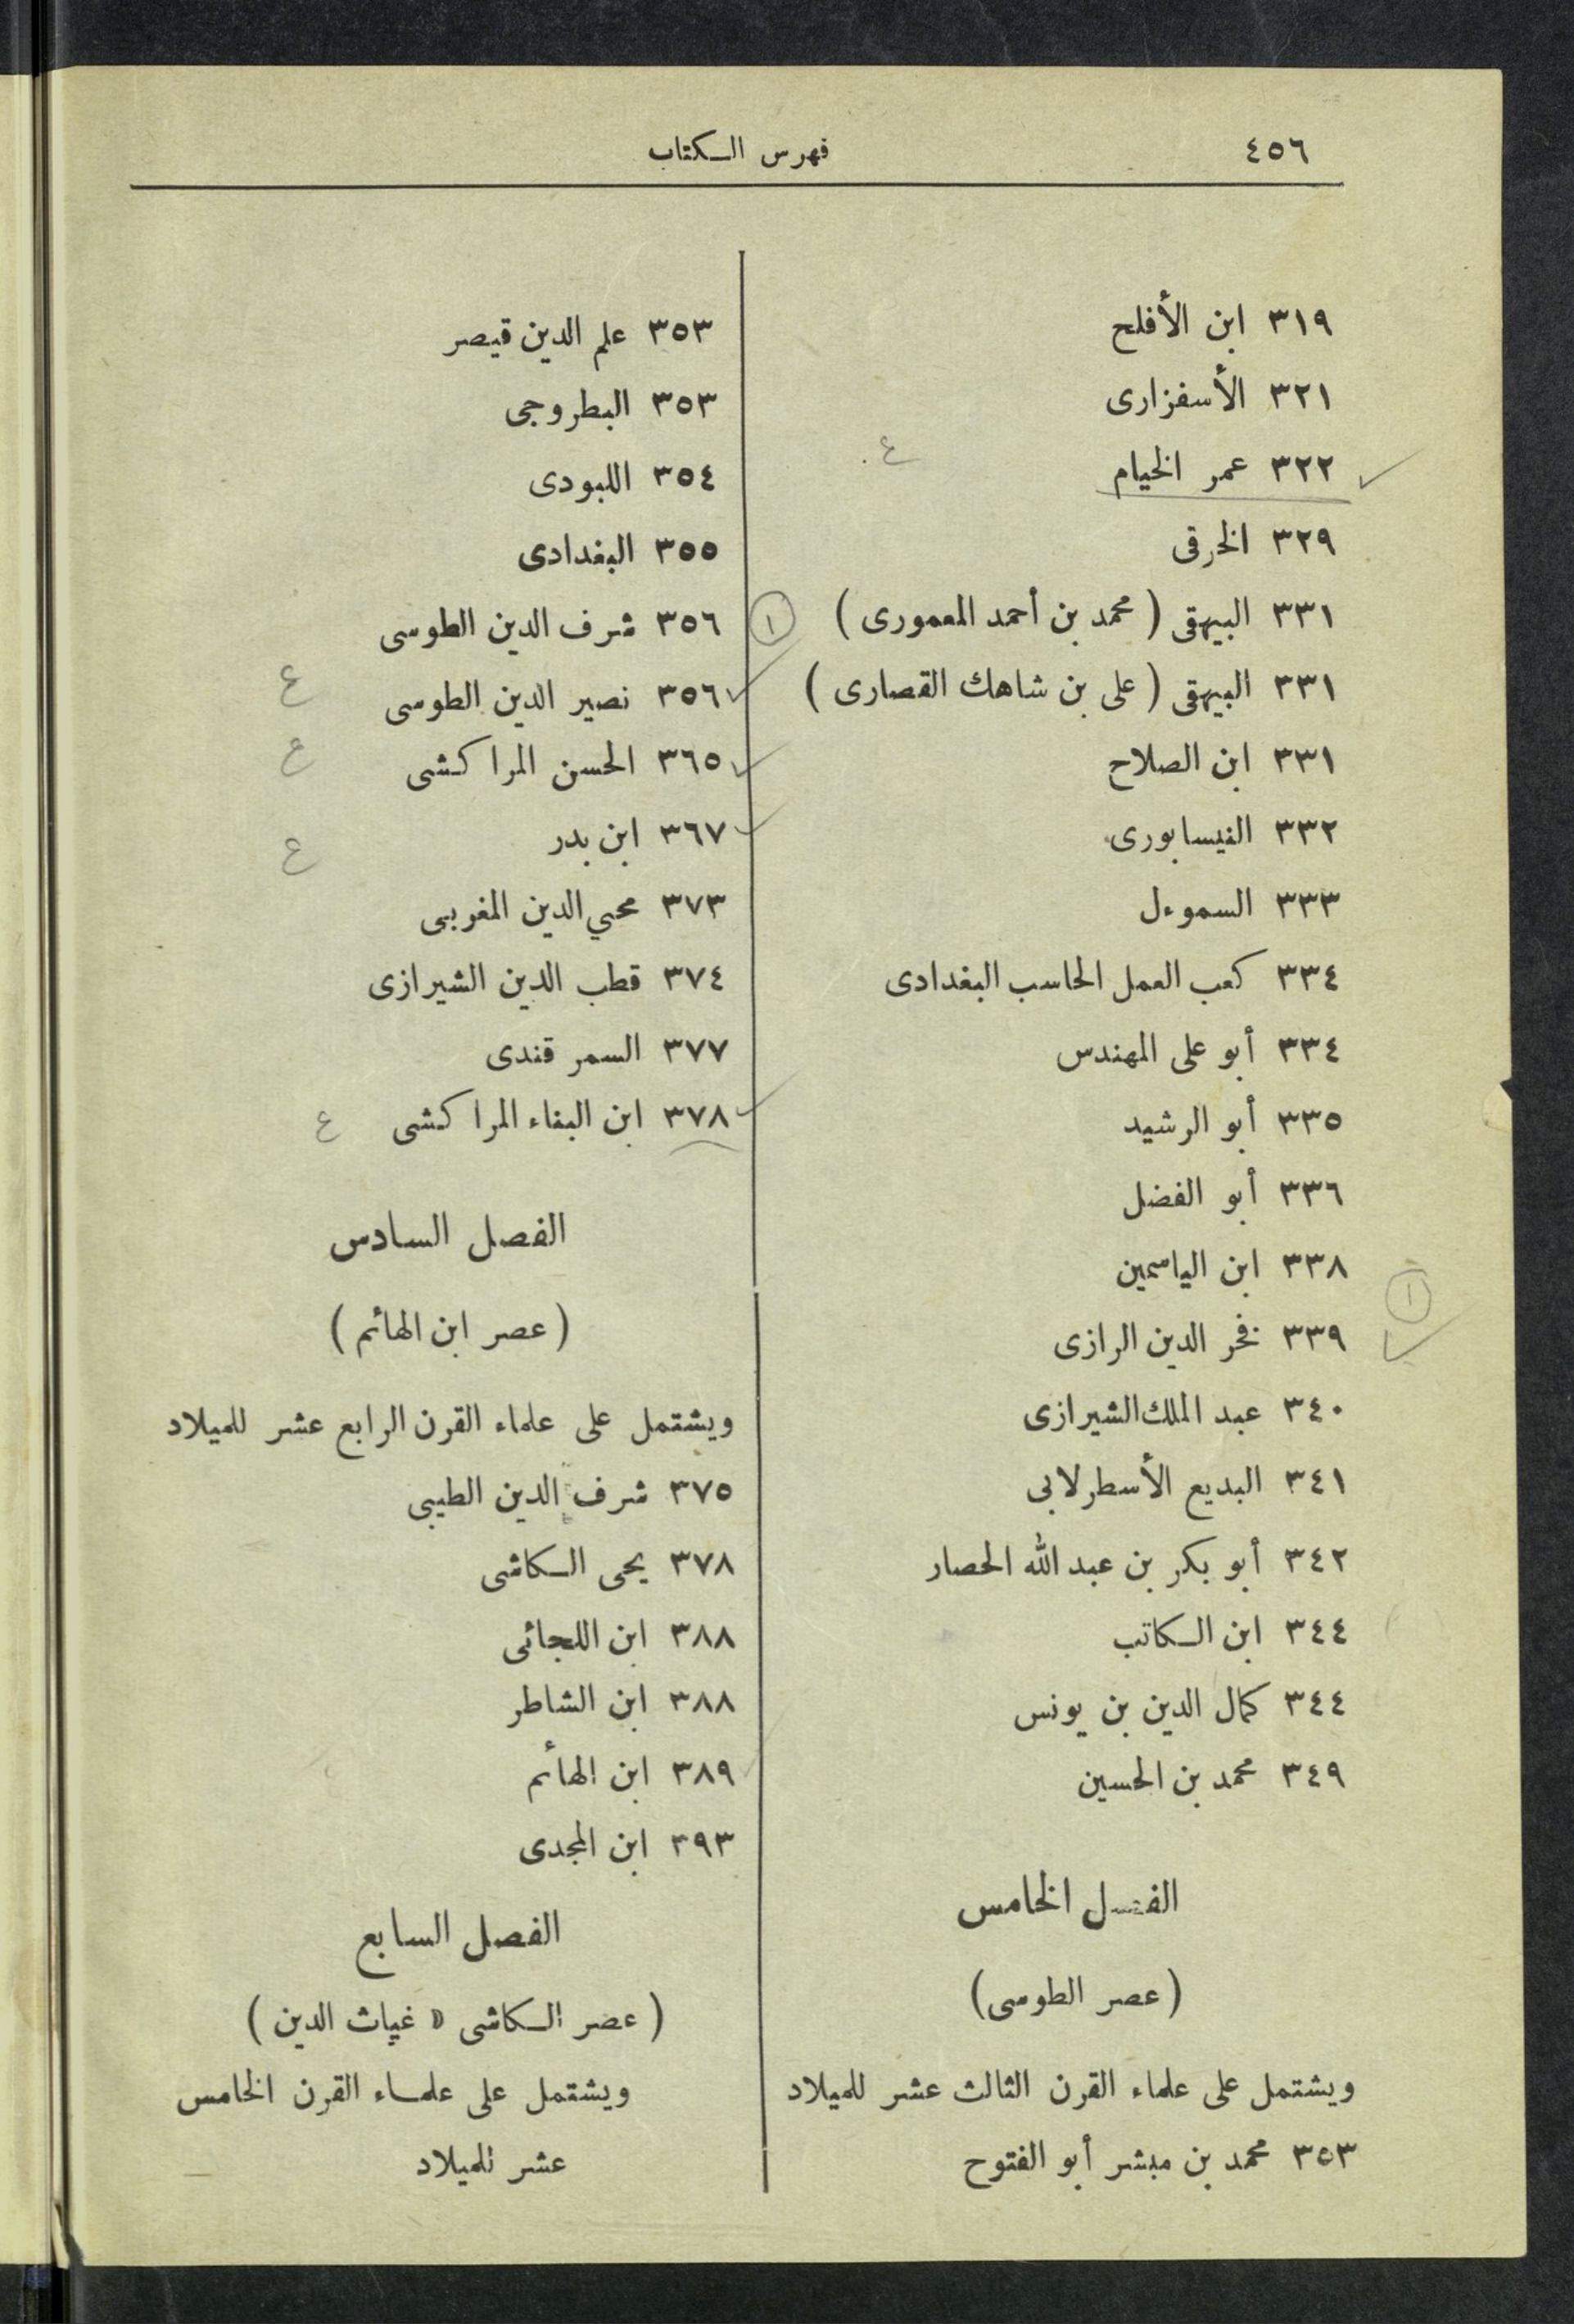 ٤٥٦
فهرس الكتاب
٣١٩ ابن الأفلح
٣٢١ الأسفزارى
٣٢٢ عمر الخيام
ع
٣٢٩ الخرقى
٣٣١ البيهقى ( محمد بن أحمد المعمورى )
٣٣١ البيهقى ( على بن شاهك القصارى )
٣٣١ ابن الصلاح
٣٣٢ النيسابورى
٣٣٣ السموءل
٣٣٤ كعب العمل الحاسب البغدادى
٣٣٤ أبو على المهندس
٣٣٥ أبو الرشيد
٣٣٦ أبو الفضل
٣٣٨ ابن الياسمين
١
٣٣٩ فخر الدين الرازى
٣٤٠ عبد الملك الشيرازى
٣٤١ البديع الأسطرلابى
٣٤٢ أبو بكر بن عبد الله الحصار
٣٤٤ ابن الكاتب
٣٤٤ كمال الدين بن يونس
٣٤٩ محمد بن الحسين
الفصل الخامس
( عصر الطوسى )
ويشتمل على علماء القرن الثالث عشر للميلاد
٣٥٣ محمد بن مبشر أبو الفتوح
٣٥٣ علم الدين قيصر
٣٥٣ البطروجى
٣٥٤ اللبودى
٣٥٥ البغدادى
١
٣٥٦ شرف الدين الطوسى
٣٥٦ نصير الدين الطوسى
ع
٣٦٥ الحسن المراكشى
ع
٣٦٧ ابن بدر
ع
٣٧٣ محيي الدين المغربى
٣٧٤ قطب الدين الشيرازى
٣٧٧ السمر قندى
٣٧٨ ابن البناء المراكشى
ع
الفصل السادس
( عصر ابن الهائم )
ويشتمل على علماء القرن الرابع عشر للميلاد
٣٧٥ شرف الدين الطيبى
٣٧٨ يحيى الكاشى
٣٨٨ ابن اللجائى
٣٨٨ ابن الشاطر
٣٨٩ ابن الهائم
٣٩٣ ابن المجدى
الفصل السابع
( عصر الكاشى « غياث الدين )
ويشتمل على علماء القرن الخامس
عشر للميلاد